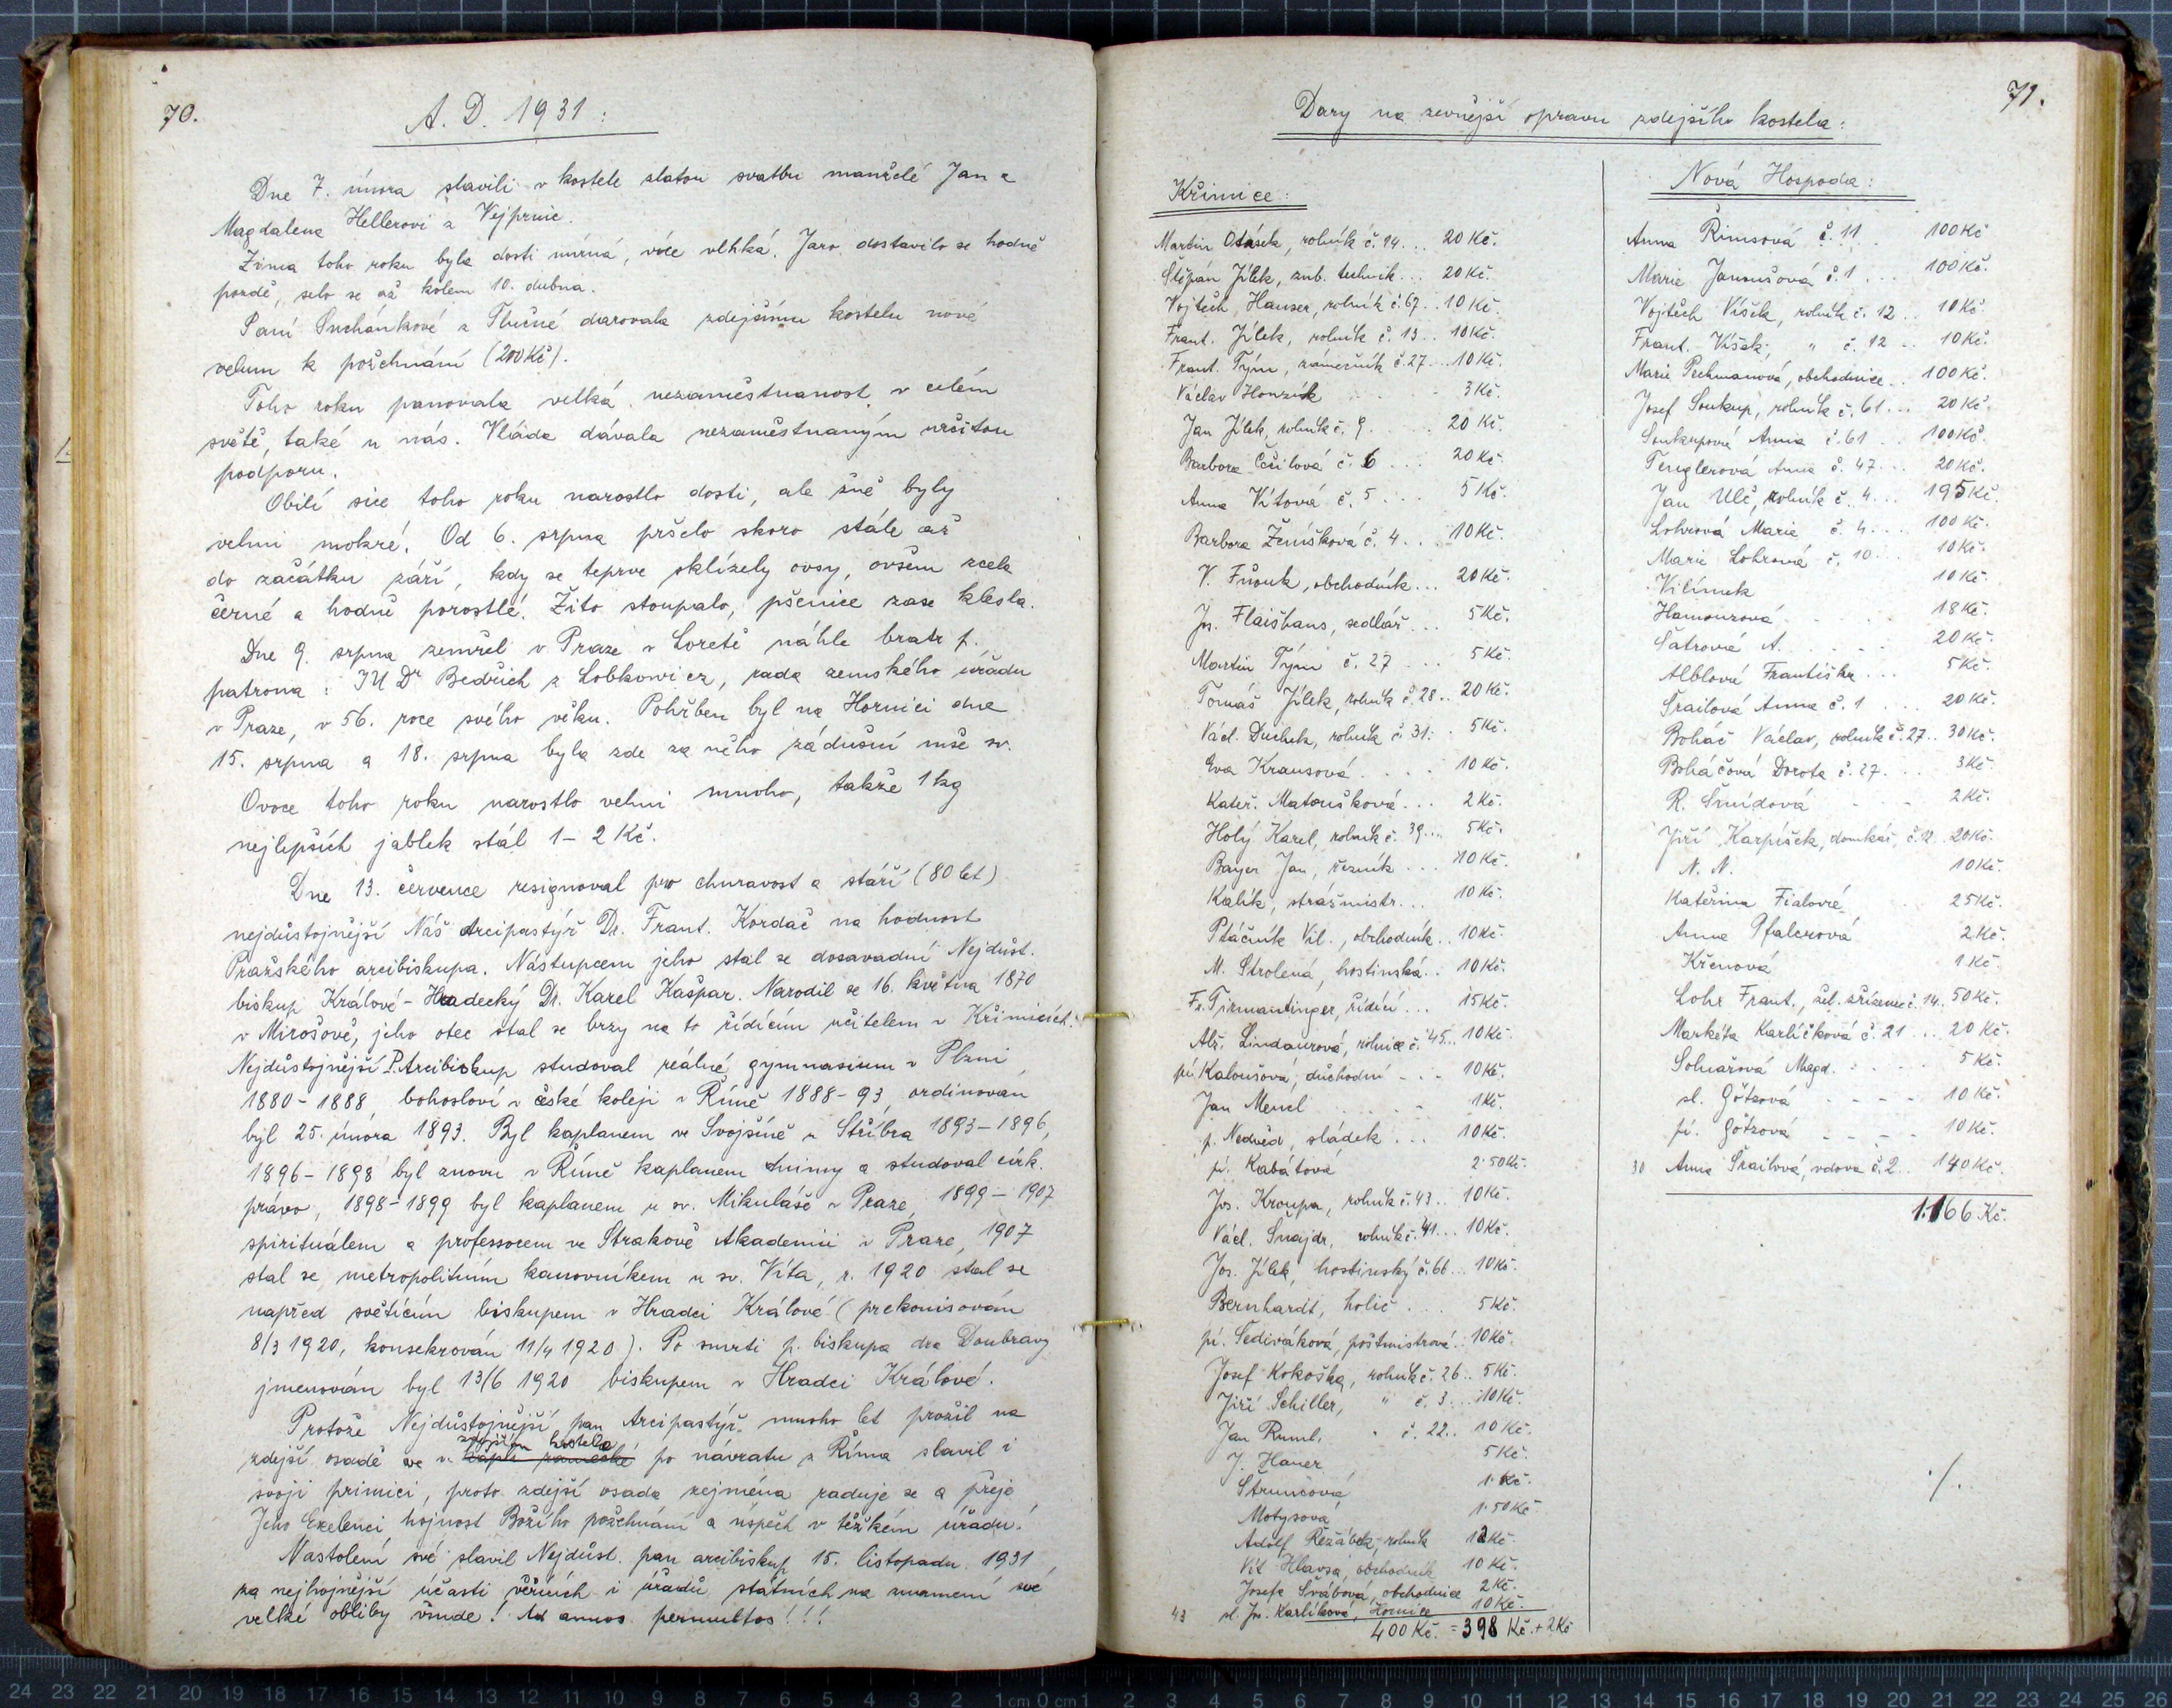 70.
A. D. 1931:
Dne 7. února slavili v kostele zlatou svatbu manželé Jan a
Magdalena Hellerovi z Vejprnic.
Zima toho roku byla dosti mírná, více vlhká. Jaro dostavilo se hodně
pozdě, selo se až kolem 10. dubna.
Paní Suchánková z Tlučné darovala zdejšímu kostelu nové
velum k požehnání (200 Kč).
Toho roku panovala velká nezaměstnanost v celém
světě, také u nás. Vláda dávala nezaměstnaným určitou
podporu.
Obilí sice toho roku narostlo dosti, ale žně byly
velmi mokré. Od 6. srpna pršelo skoro stále až
do začátku září, kdy se teprve sklízely ovsy, ovšem zcela
černé a hodně porostlé. Žito stoupalo, pšenice zase klesla.
Dne 9. srpna zemřel v Praze v Loretě náhle bratr p.
patrona: JU Dr Bedřich z Lobkowicz, rada zemského úřadu
v Praze, v 56. roce svého věku. Pohřben byl na Hornici dne
15. srpna a 18. srpna byla zde za něho zádušní mše sv.
Ovoce toho roku narostlo velmi mnoho, takže 1 kg
nejlepších jablek stál 1-2 Kč.
Dne 13. července resignoval pro churavost a stáří (80 let)
nejdůstojnější Náš Arcipastýř Dr. Frant. Kordač na hodnost
Pražského arcibiskupa. Nástupcem jeho stal se dosavadní Nejdůst.
biskup Králové-Hradecký Dr. Karel Kašpar. Narodil se 16. května 1870
v Mirošově, jeho otec stal se brzy na to řídícím učitelem v Křimicích.
Nejdůstojnější P. Arcibiskup studoval reálné gymnasium v Plzni
1880-1888, bohosloví v české koleji v Římě 1888-93, ordinován
byl 25. února 1893. Byl kaplanem ve Svojšíně u Stříbra 1893-1896,
1896-1898 byl znovu v Římě kaplanem Animy a studoval círk.
právo, 1898-1899 byl kaplanem u sv. Mikuláše v Praze, 1899-1907
spirituálem a professorem ve Strakově Akademii v Praze, 1907
stal se metropolitním kanovníkem u sv. Víta, r. 1920 stal se
napřed světícím biskupem v Hradci Králové (prekonisován
8/3 1920, konsekrován 11/4 1920). Po smrti p. biskupa dra Doubravy
jmenován byl 13/6 1920 biskupem v Hradci Králové.
Protože Nejdůstojnější pan Arcipastýř mnoho let prožil na
zdejším kostele
zdejší osadě ve v kapli zámecké po návratu z Říma slavil i
svoji primici, proto zdejší osada zejména raduje se a přeje
Jeho Excelenci hojnost Božího požehnání a úspěch v těžkém úřadu!
Nastolení své slavil Nejdůst. pan arcibiskup 15. listopadu 1931
za nejhojnější účasti věřících i úřadů státních na znamení své
velké obliby všude! Ad annos permultos!!!
71.
Dary na zevnější opravu zdejšího kostela:
Křimice:
Martin Otásek, rolník č. 14... 20 Kč.
Štěpán Jílek, zub. technik... 20 Kč.
Vojtěch Hauser, rolník č. 67.. 10 Kč.
Frant. Jílek, rolník č. 13.. 10 Kč.
Frant. Tým, zámečník č. 27... 10 Kč.
Václav Honzík 3 Kč.
Jan Jílek, rolník č. 9 20 Kč.
Barbora Češilová č. 6... 20 Kč.
Anna Vítová č. 5... 5 Kč.
Barbora Žemíšková č. 4... 10 Kč.
V. Fňouk, obchodník... 20 Kč.
Jos. Flaišhans, sedlář... 5 Kč.
Martin Tým č. 27... 5 Kč.
Tomáš Jílek, rolník č. 28.. 20 Kč.
Václ. Duchek, rolník č. 31.. 5 Kč.
Eva Krausová.... 10 Kč.
Kateř. Matoušková... 2 Kč.
Holý Karel, rolník č. 39.... 5 Kč.
Bayer Jan, řezník... 10 Kč.
Kalík, strážmistr... 10 Kč.
Ptáčník Vil., obchodník.. 10 Kč.
M. Strolená, hostinská.. 10 Kč.
Fr. Tirmantinger, řídící... 15 Kč.
Alž. Lindaurová, rolnice č. 45... 10 Kč.
pí. Kaloušová, důchodní - - - 10 Kč.
Jan Mencl 1 Kč.
p. Nedvěd, sládek... 10 Kč.
pí. Kabátová 2·50 Kč.
Jos. Kroupa, rolník č. 43.. 10 Kč.
Václ. Šnajdr, rolník č. 41... 10 Kč.
Jos. Jílek, hostinský č. 66... 10 Kč.
Bernhardt, holič... 5 Kč.
pí. Šediváková, poštmistrová. 10 Kč.
Josef Kokoška, rolník č. 26.. 5 Kč.
Jiří Schiller, " č. 3... 10 Kč.
Jan Ruml, " č. 22.. 10 Kč.
J. Hauer 5 Kč.
Strunčová 1·Kč.
Motysová 1·50 Kč.
Adolf Řežábek, rolník 12 Kč.
Vít Hlavsa, obchodník 10 Kč.
Josefa Švábová, obchodnice 2 Kč.
43 sl. Jos. Karlíková, 10 Kč.
400 Kč. = 398 Kč. + 2 Kč
Nová Hospoda:
Anna Římsová č. 11.. 100 Kč
Marie Janoušová č. 1... 100 Kč.
Vojtěch Víšek, rolník č. 12.. 10 Kč.
Frant. Víšek, " č. 12.. 10 Kč.
Marie Pechmanová, obchodnice... 100 Kč.
Josef Soukup, rolník č. 61... 20 Kč.
Soukupová Anna č. 61... 100 Kč.
Tenglerová Anna č. 47... 20 Kč.
Jan Ulč, rolník č. 4... 195 Kč.
Lohrová Marie č. 4... 100 Kč.
Marie Lohrová č. 10... 10 Kč.
Vilímek 10 Kč.
Hamouzová 18 Kč.
Šatrová A..... 20 Kč.
Alblová Františka... 5 Kč.
Šrailová Anna č. 1.... 20 Kč.
Boháč Václav, rolník č. 27.. 30 Kč.
Boháčová Dorota č. 27... 3 Kč
R. Šmídová 2 Kč.
Jiří Karpíšek, domkář, č. 12. 20 Kč.
N. N. 10 Kč.
Kateřina Fialová 25 Kč.
Anna Pfalcrová 2 Kč.
Křenová 1 Kč.
Lohr Frant., žel. zřízenec č. 14. 50 Kč.
Markéta Karlíčková č. 21... 20 Kč.
Solnařová Magd. 5 Kč.
sl. Götzová - - - - 10 Kč.
pí. Götzová - - - - 10 Kč.
30 Anna Šrailová, vdova č. 2.. 140 Kč.
1.166 Kč.
./.